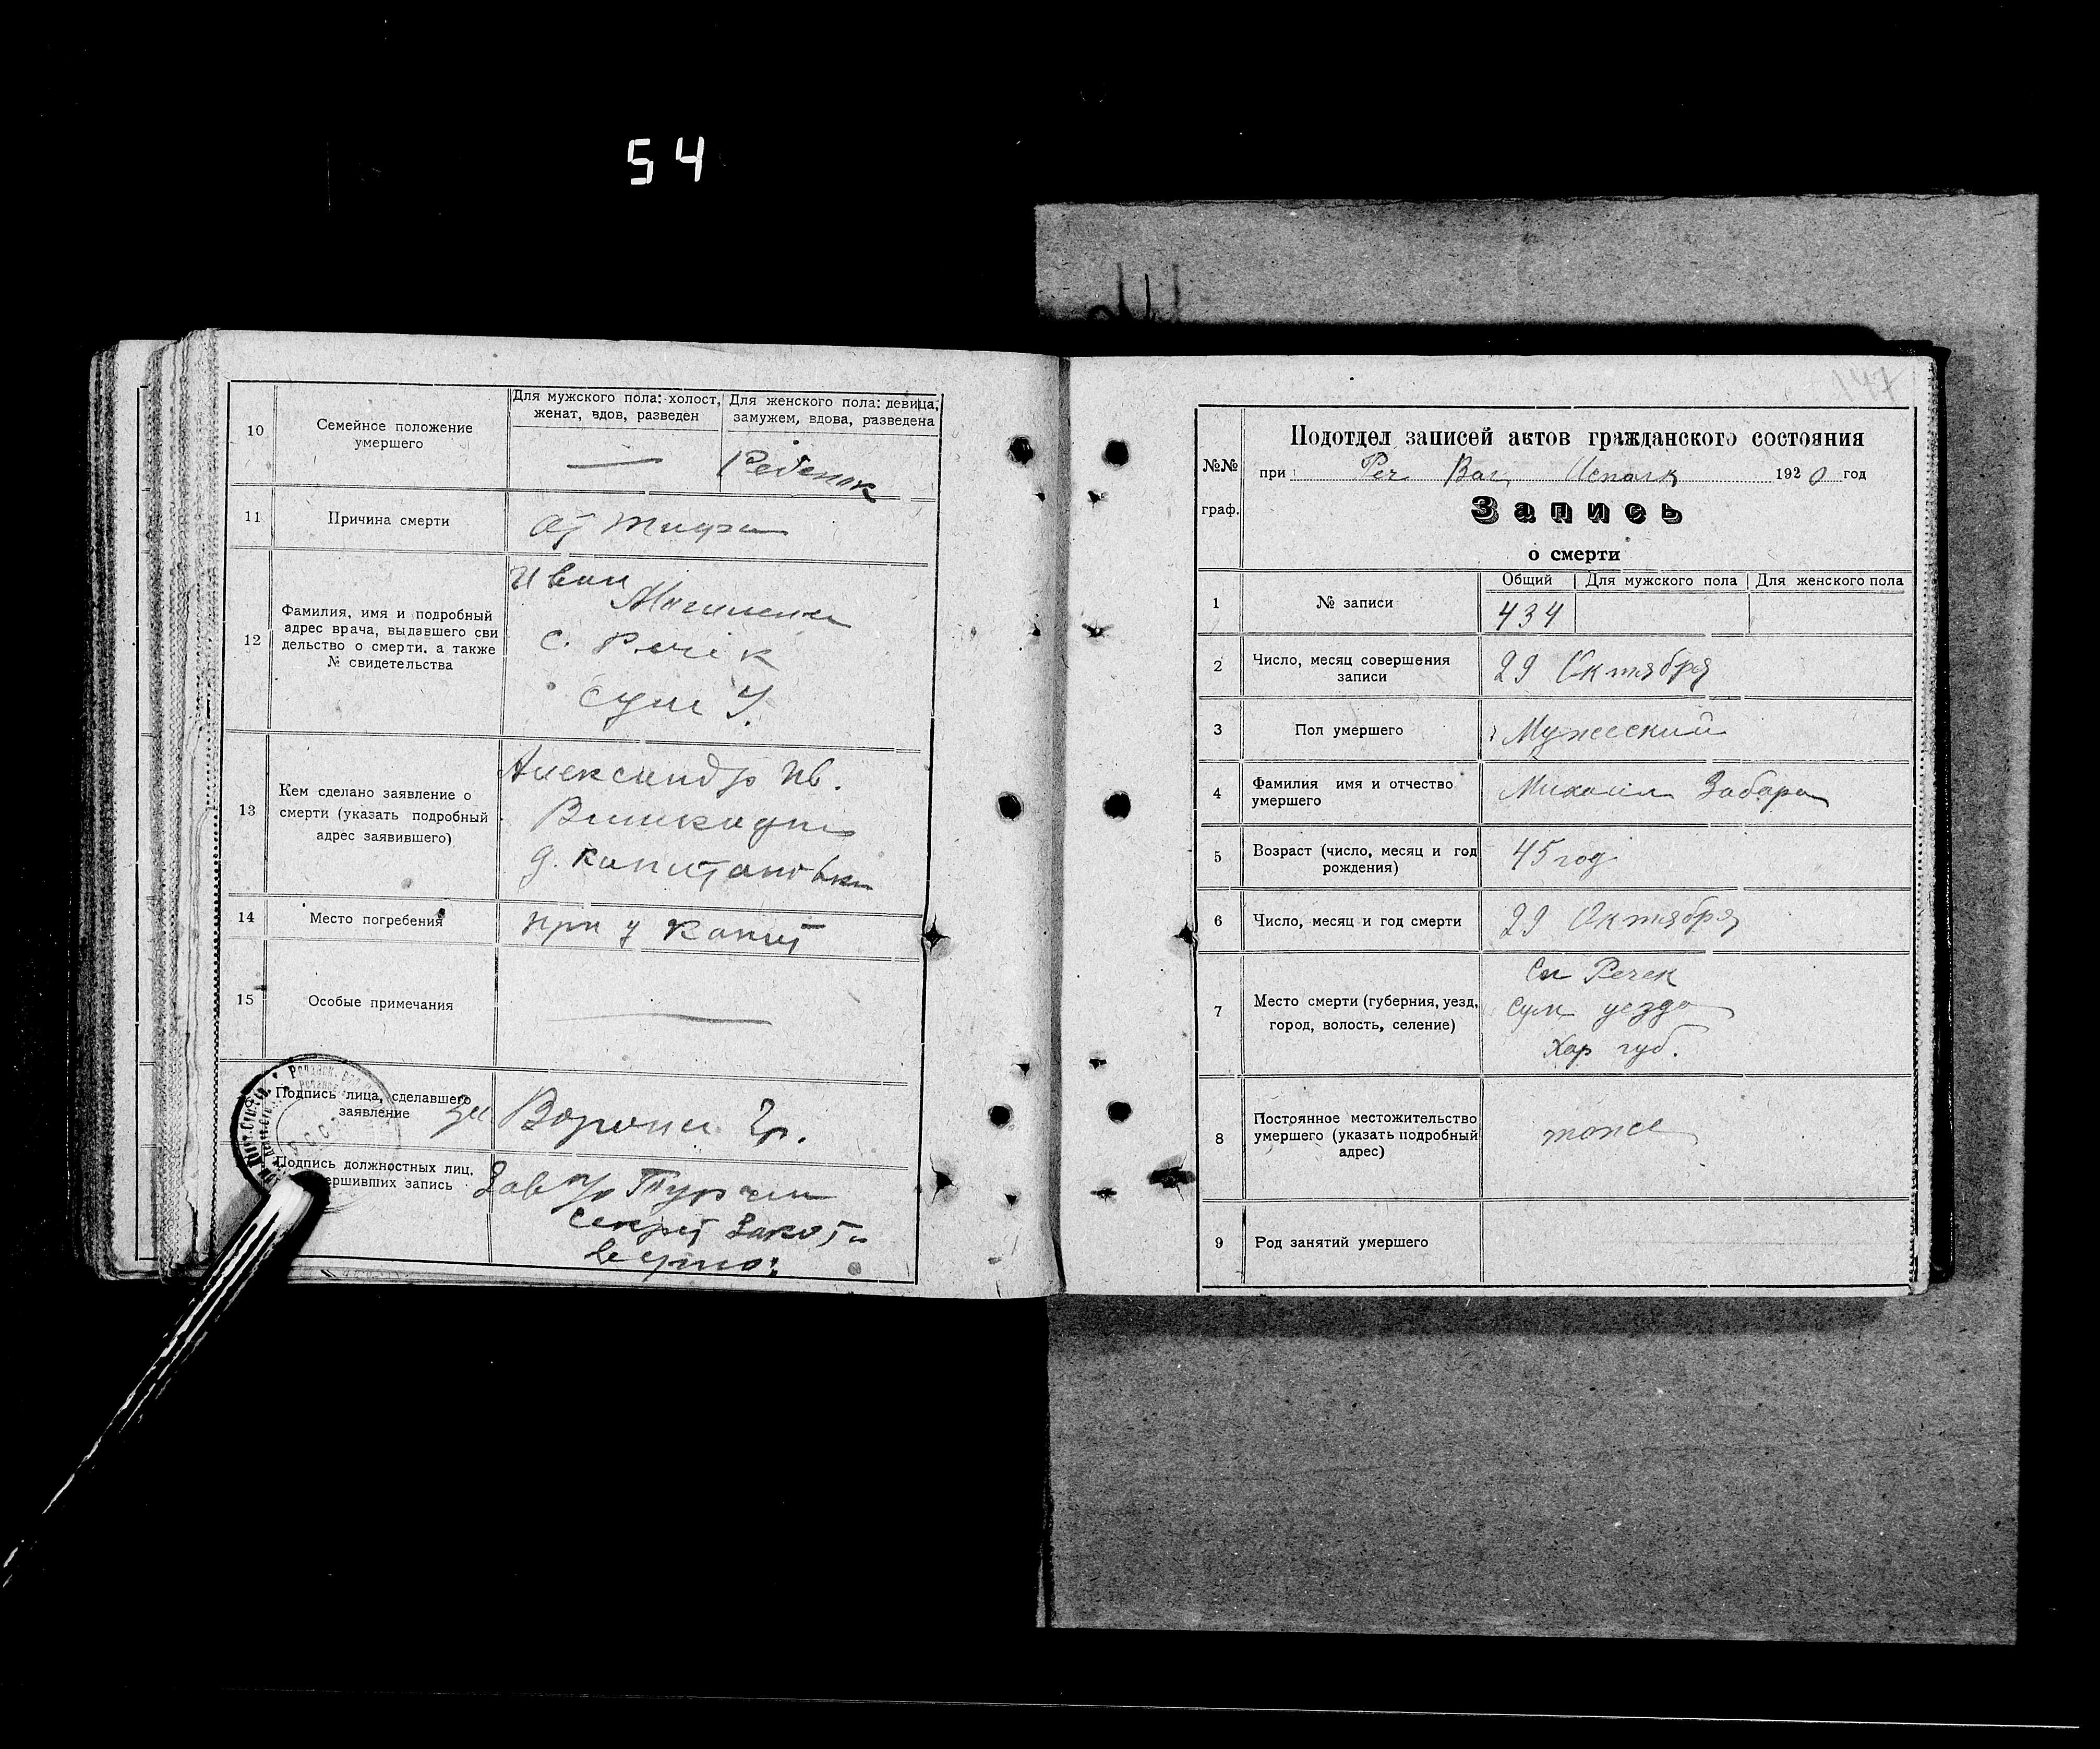 54
10
Семейное положение
умершего
Для мужского пола: холост,
женат, вдов, разведен
Для женского пола: девица,
замужем, вдова, разведена
Ребенок
11
Причина смерти
от тифа
12
Фамилия, имя и подробный
адрес врача, выдавшего сви
детельство о смерти, а также
№ свидетельства
Иван
с. Речек
Сум У.
13
Кем сделано заявление о
смерти (указать подробный
адрес заявившего)
Александр Ив.
д. Капитановка
14
Место погребения
при у Капит
15
Особые примечания
Подпись лица, сделавшего
заявление
за Ворона Гр.
Подпись должностных лиц,
совершивших запись
Зав п/о Турчин
Секрет
147
№№
граф.
Подотдел записей актов гражданского состояния
при Реч Вол Исполк 1920 год
Запись
о смерти
1
№ записи
Общий
Для мужского пола
Для женского пола
434
2
Число, месяц совершения
записи
29 Октября
3
Пол умершего
Мужеский
4
Фамилия имя и отчество
умершего
Михаил Забара
5
Возраст (число, месяц и год
рождения)
45 год
6
Число, месяц и год смерти
29 Октября
7
Место смерти (губерния, уезд,
город, волость, селение)
Сл Речек
Сум уезда
Хар губ.
8
Постоянное местожительство
умершего (указать подробный
адрес)
тоже
9
Род занятий умершего